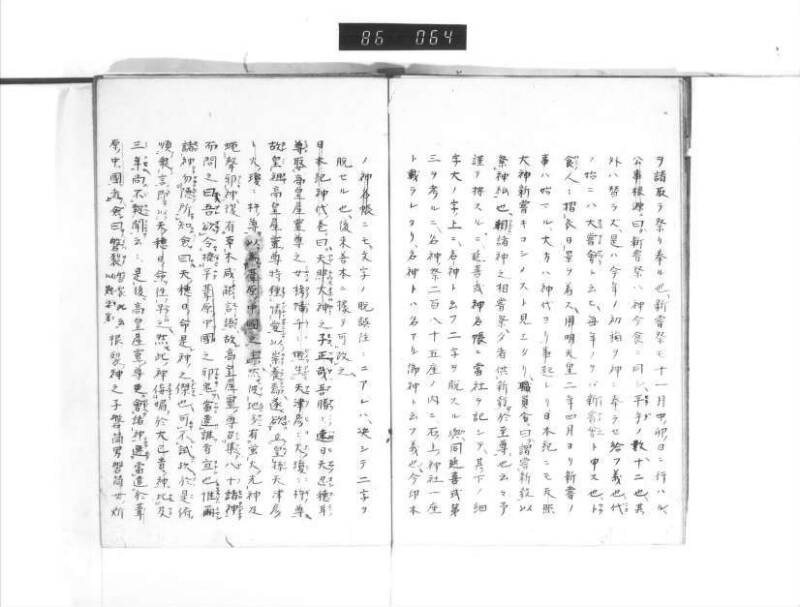 86 064
ヲ請取テ祭リ奉ル也、新嘗祭モ十一月中卯日ニ行ハル、
公事根源ニ曰新嘗祭ハ神今食ニ同シ、平年ノ数十二也、其
外ハ替ラス、是ハ今年ノ初稲ヲ神ニ奉ラセ給フ義也、代
ノ始ニハ大嘗會ト云ヒ、毎年ノヲハ新嘗祭ト申ス也、ト
食人ニ摺衣日蔭ヲ着ス、用明天皇二年四月ヨリ新嘗ノ
事ハ始マル、大方ハ神代ヨリ事起レリ日本紀ニモ天照
大神新嘗キコシメスト見エタリ、職員令ニ曰謂嘗新穀以
祭神祇也、相諸神之相嘗祭
謹テ按スルニ、延喜式神名帳ニ當社ヲ記シテ、其下ノ細
字大ノ字ノ上ニ、名神ト云フ二字ヲ脱スル歟、同延喜式第
三ヲ考ルニ、名神祭二百八十五座ノ内ニ石上神社一座
ト載ラレタリ、名神トハ名アル御神ト云フ義也、今印本
ノ神名帳ニモ文字ノ脱誤往〃ニアレハ、決シテ二字ヲ
脱セル也、後来善本ニ據テ可改之、
日本紀神代巻ニ曰天照大神之子正哉吾勝〃速日天忍穂耳
尊娶高皇産霊尊之女栲幡千〃姫生天津彦〃火瓊〃杵尊
故皇祖高皇産霊尊特鍾憐愛以崇養焉遂欲立皇孫天津彦
〃火瓊〃杵尊以為葦原中國之主然彼地多有蛍火光神及
蝿聲邪神復有草木咸能言語故高皇産霊尊召集八十諸神
而問之曰吾欲令撥平葦原中國之邪鬼當遣誰者宜也惟爾
諸神勿隠所知僉曰天穂日命是神之傑也可不試歟於是俯
順衆言即以天穂日命往平之然此神侫媚於大己貴神比及
三年尚不報聞云〃是後高皇産霊尊更會諸神選當遣於葦
原中國者僉曰磐裂根裂神之子磐筒男磐筒女所